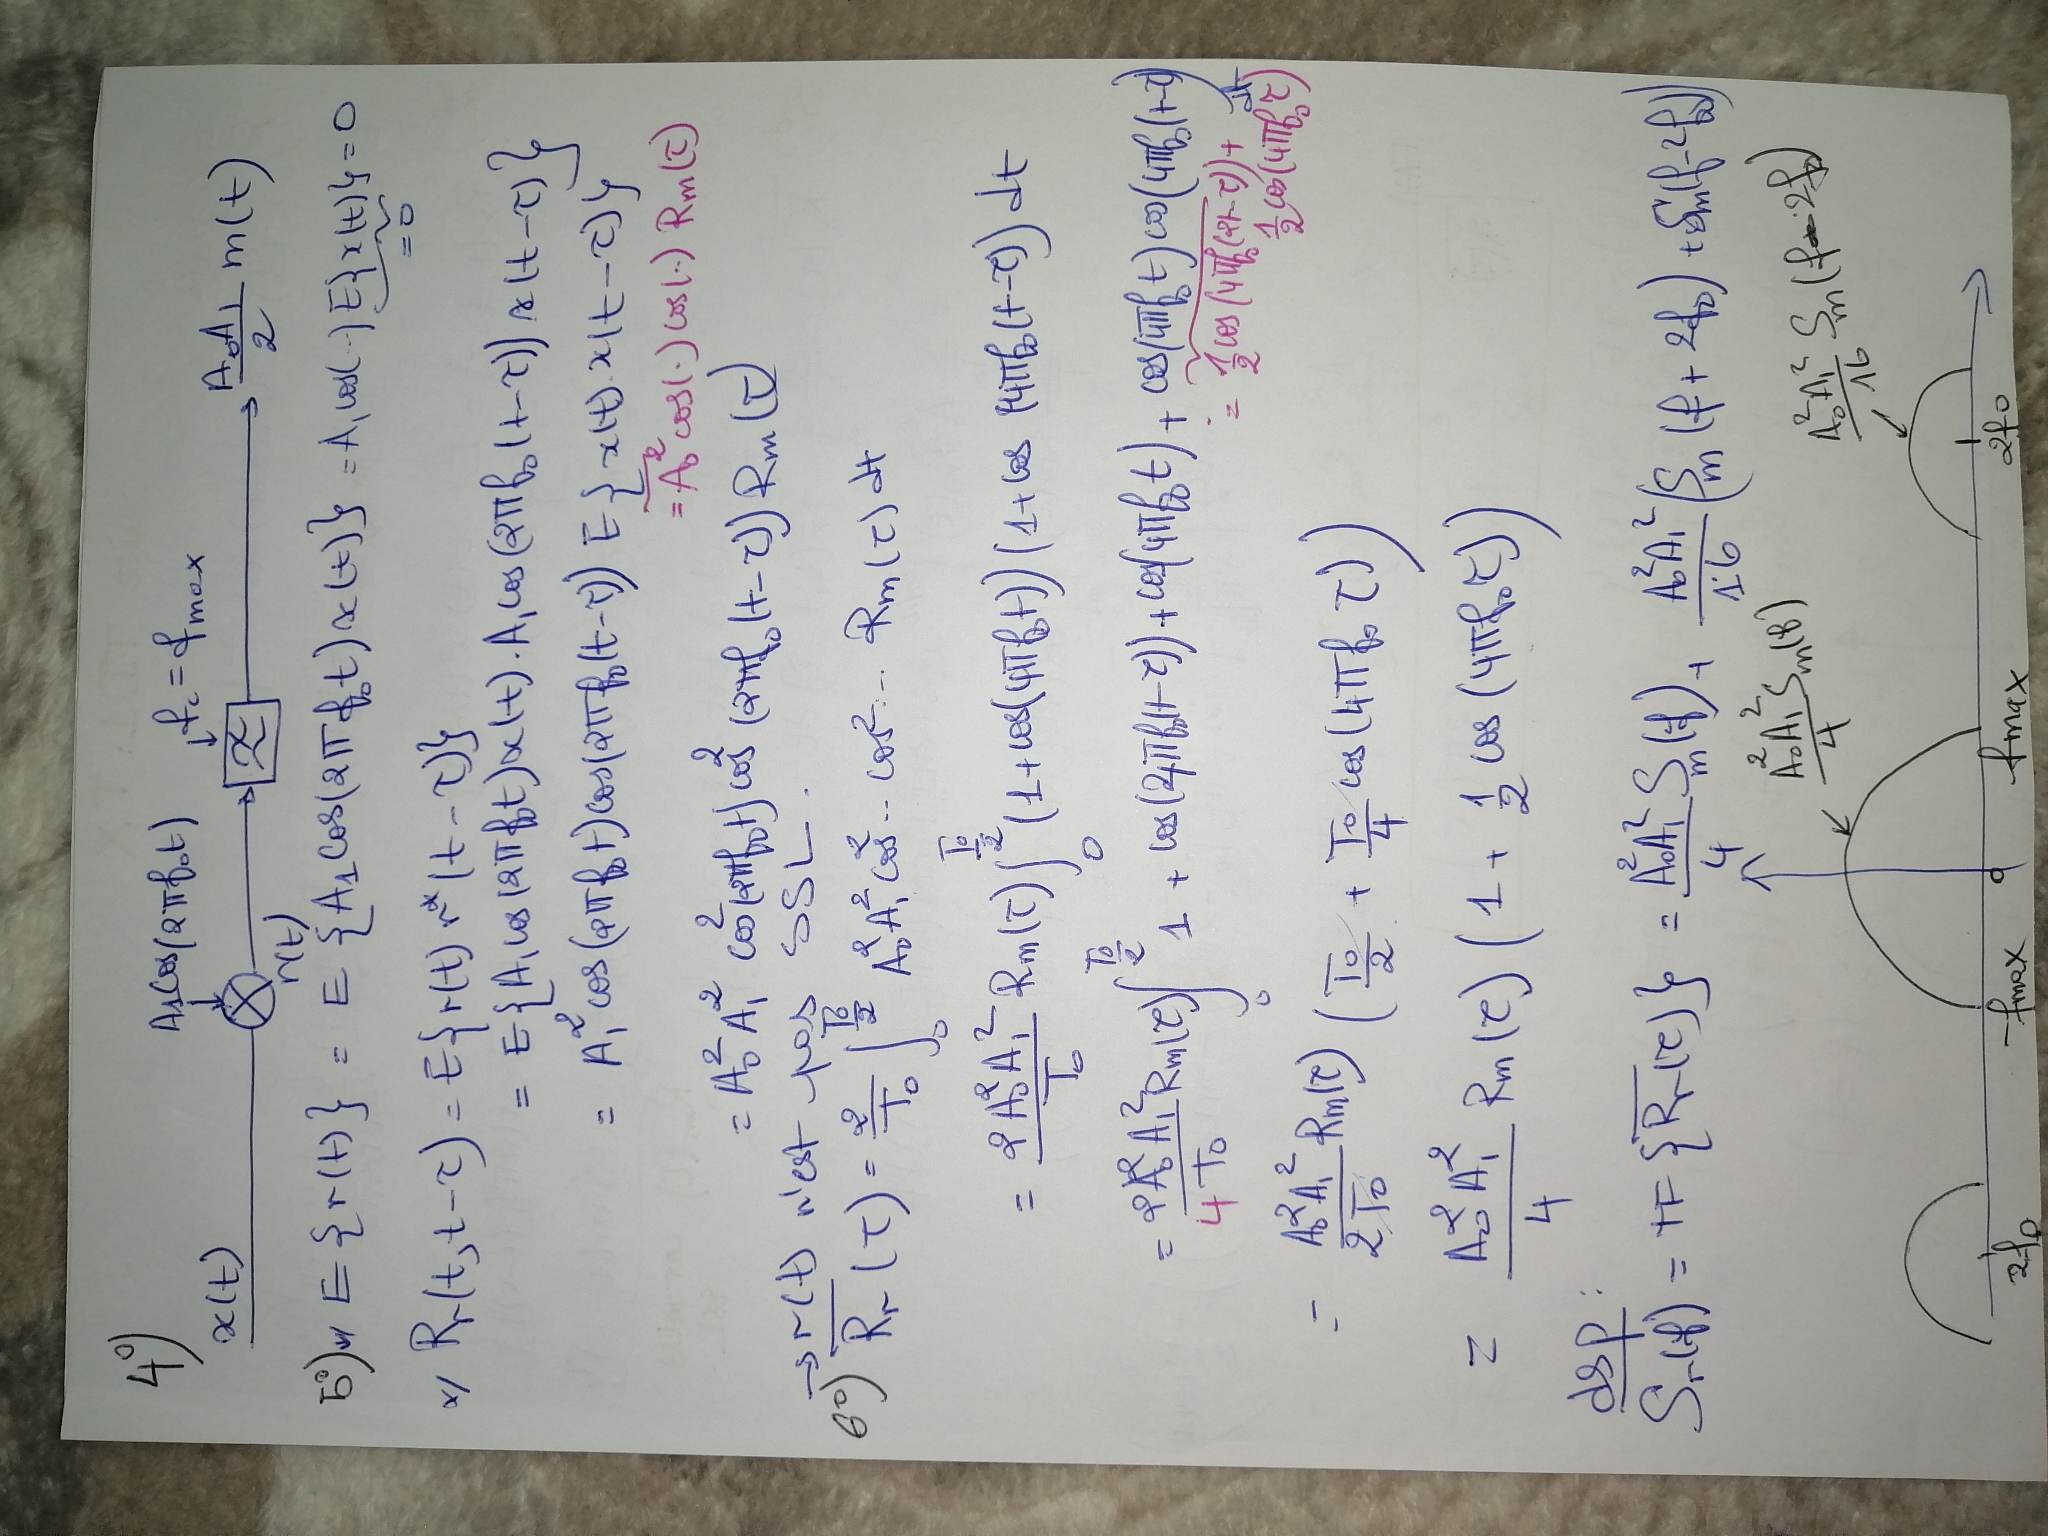 4°)
A₁cos(2πf₀t)
f_c = f_max
x(t)
r(t)
A₀A₁/2 m(t)
5°) */ E{r(t)} = E{A₁cos(2πf₀t)x(t)} = A₁cos(..) E{x(t)} = 0
= 0
*/ R_r(t,t-τ) = E{r(t) r*(t-τ)}
= E{A₁cos(2πf₀t)x(t).A₁cos(2πf₀(t-τ)) x(t-τ)}
= A₁² cos(2πf₀t)cos(2πf₀(t-τ)) E{x(t).x(t-τ)}
= A₀² cos(.)cos(..) R_m(τ)
= A₀² A₁² cos²(2πf₀t)cos²(2πf₀(t-τ)) R_m(τ)
→ r(t) n'est pas SSL.
6°) R̅_r(τ) = 2/T₀ ∫₀^{T₀/2} A₀²A₁² cos².. cos²... R_m(τ) dt
= 2A₀²A₁²/T₀ R_m(τ) ∫₀^{T₀/2} (1+cos(4πf₀t))(1+cos(4πf₀(t-τ)) dt
= 2A₀²A₁²/4T₀ R_m(τ) ∫₀^{T₀/2} 1 + cos(4πf₀(t-τ)) + cos(4πf₀t) + cos(4πf₀t)cos(4πf₀(t-τ)) dt
= 1/2 cos(4πf₀(2t-τ)) +
1/2 cos(4πf₀τ)
= A₀²A₁²/2T₀ R_m(τ) (T₀/2 + T₀/4 cos(4πf₀τ))
= A₀²A₁²/4 R_m(τ) (1 + 1/2 cos(4πf₀τ))
dsp :
S_r(f) = TF{R̅_r(τ)} = A₀²A₁²/4 S_m(f) + A₀²A₁²/16 (S_m(f+2f₀) + S_m(f-2f₀))
A₀²A₁²/4 S_m(f)
A₀²A₁²/16 S_m(f-2f₀)
2f₀ -fmax 0 fmax 2f₀